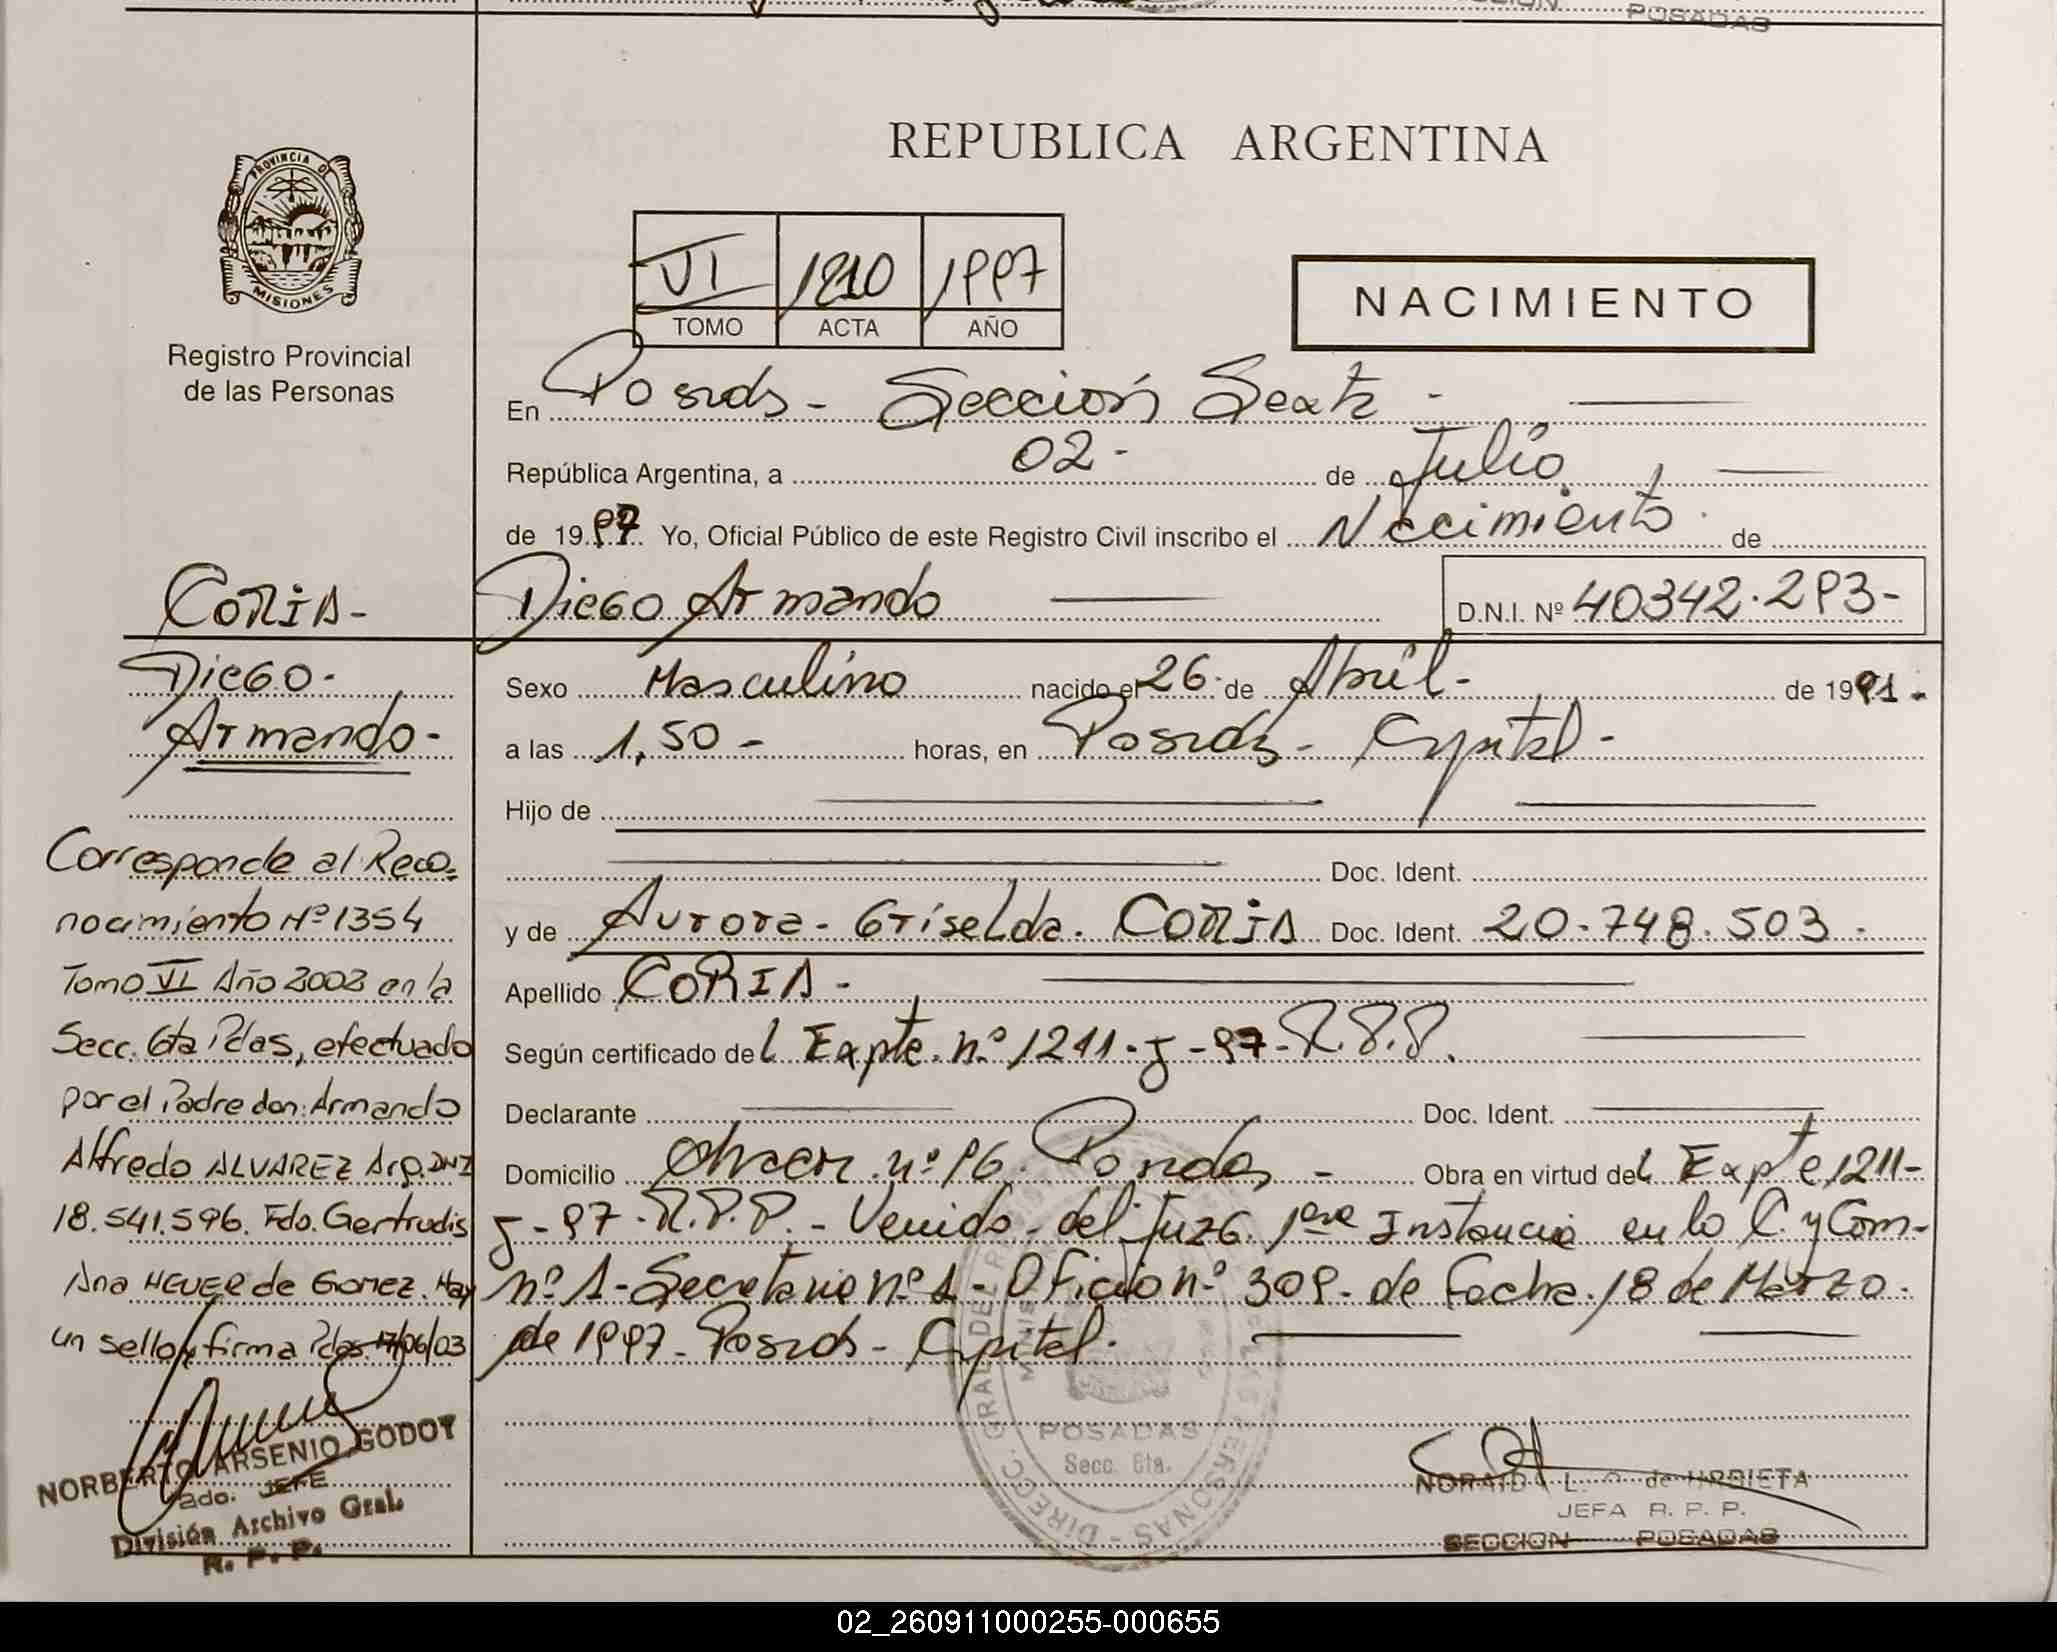 REPUBLICA ARGENTINA
PROVINCIA DE
MISIONES
Registro Provincial
de las Personas
VI 1210 1997
TOMO ACTA AÑO
NACIMIENTO
En Posadas - Sección Sexta -
República Argentina, a 02 - de Julio
de 1997 Yo, Oficial Público de este Registro Civil inscribo el Nacimiento de
Diego Armando D.N.I. Nº 40342.293-
Sexo Masculino nacido el 26 de Abril - de 1991.
a las 1,50 - horas, en Posadas - Capital -
Hijo de
Doc. Ident.
y de Aurora - Griselda. CORIA Doc. Ident. 20.748.503.
Apellido CORIA -
Según certificado del Expte. nº 1211-J-97-R.P.P.
Declarante Doc. Ident.
Domicilio nº 96. Posadas - Obra en virtud del Expte 1211-
J-97-R.P.P. - Venido del Juzg. 1era Instancia en lo C. y Com-
nº 1-Secretaria nº 1 - Oficio nº 309- de Fecha 18 de Marzo.
de 1997- Posadas - Capital.
CORIA-
Diego-
Armando-
Corresponde al Reco-
nocimiento Nº 1354
Tomo VI Año 2002 en la
Secc. 6ta Pdas, efectuado
por el Padre don: Armando
Alfredo ALVAREZ Arg. DNI
18.541.596. Fdo. Gertrudis
Ana HEUER de Gomez. Hay
un sello y firma Pdas 17/06/03
NORBERTO ARSENIO GODOY
JEFE
División Archivo Gral.
R. P. P.
POSADAS
Secc. 6ta.
NORAIDA L. de URBIETA
JEFA R. P. P.
SECCION POSADAS
02_260911000255-000655